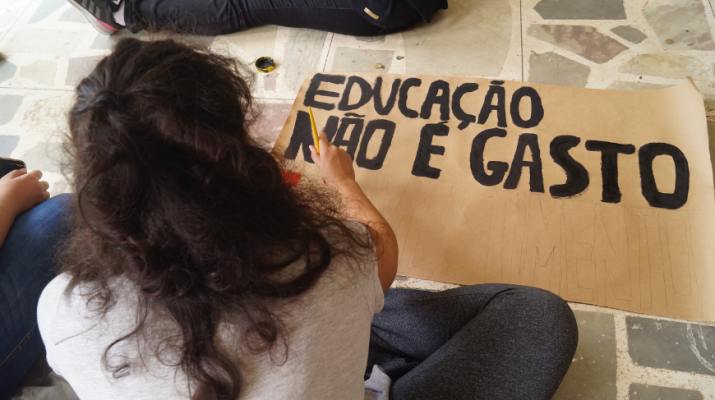 EDUCAÇÃO
NÃO É GASTO